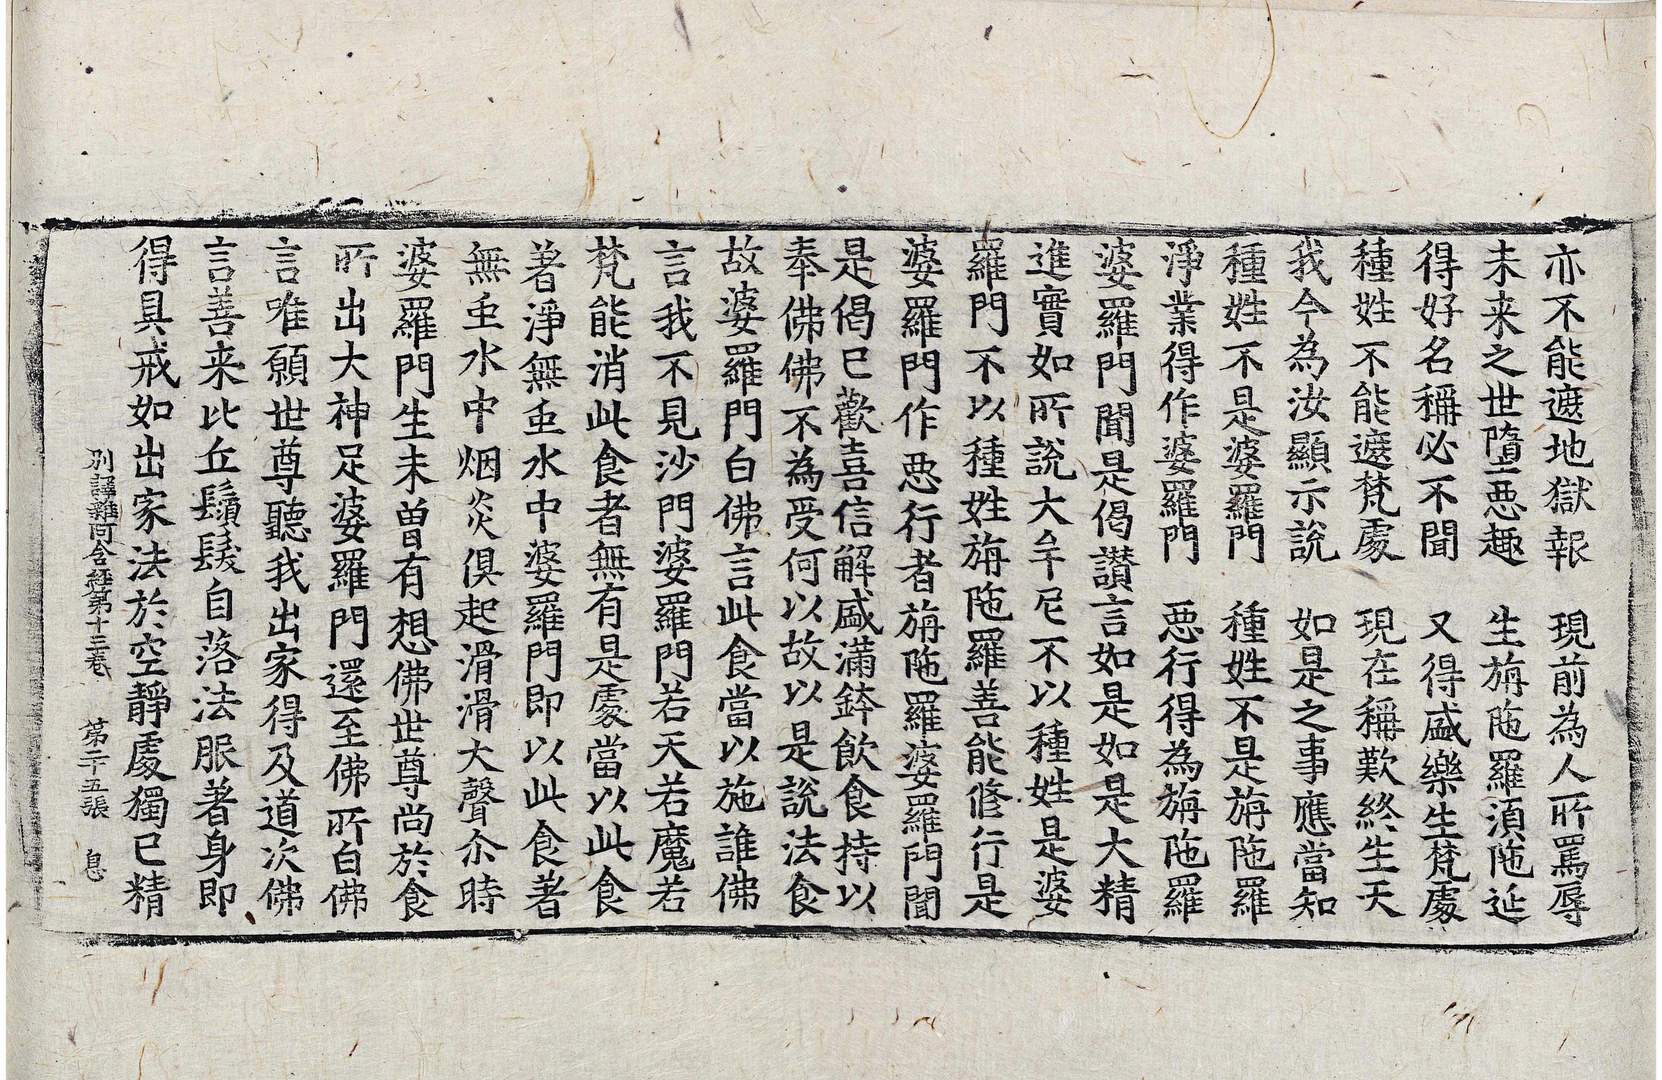 亦不能遮地獄報　現前為人所罵辱
未来之世墮惡趣　生旃陁羅湏陁延
得好名稱必不聞　又得盛樂生梵處
種姓不能遮梵處　現在稱歎終生天
我今為汝顯示說　如是之事應當知
種姓不是婆羅門　種姓不是旃陁羅
淨業得作婆羅門　惡行得為旃陁羅
婆羅門聞是偈讃言如是如是大精
進實如所說大牟尼不以種姓是婆
羅門不以種姓旃陁羅善能修行是
婆羅門作惡行者旃陁羅婆羅門聞
是偈已歡喜信解盛滿鉢飲食持以
奉佛佛不為受何以故以是說法食
故婆羅門白佛言此食當以施誰佛
言我不見沙門婆羅門若天若魔若
梵能消此食者無有是處當以此食
著淨無虫水中婆羅門即以此食著
無虫水中烟炎俱起滑滑大聲尒時
婆羅門生未曽有想佛世尊尚於食
所出大神足婆羅門還至佛所白佛
言唯願世尊聽我出家得及道次佛
言善来比丘鬚髮自落法服著身即
得具戒如出家法於空靜處獨已精
別譯雜阿含経第十三卷　第二十五張　息